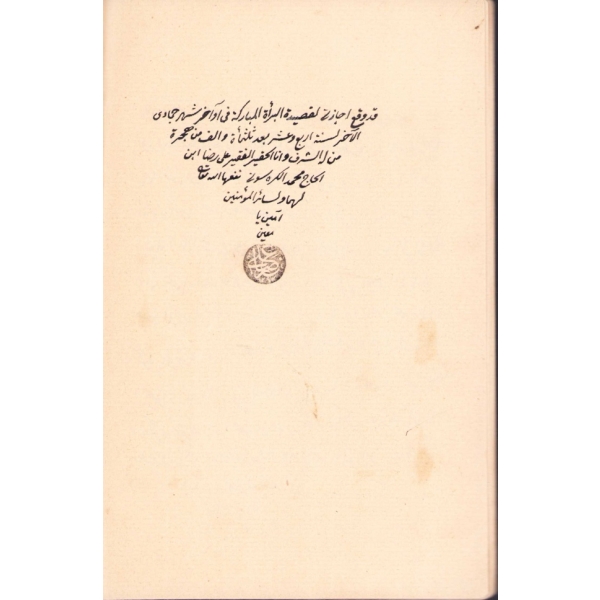 قد وقع اجازتى لقصيدة البرأة المباركة فى اواخر شهر جمادى
الآخر لسنة اربع وعشر بعد ثلثمأة والف من هجرة
من له الشرف وانا الحقير الفقير على رضا ابن
الحاج محمد نفعها الله تعالى
لهما ولسائر المؤمنين
آمين يا
معين